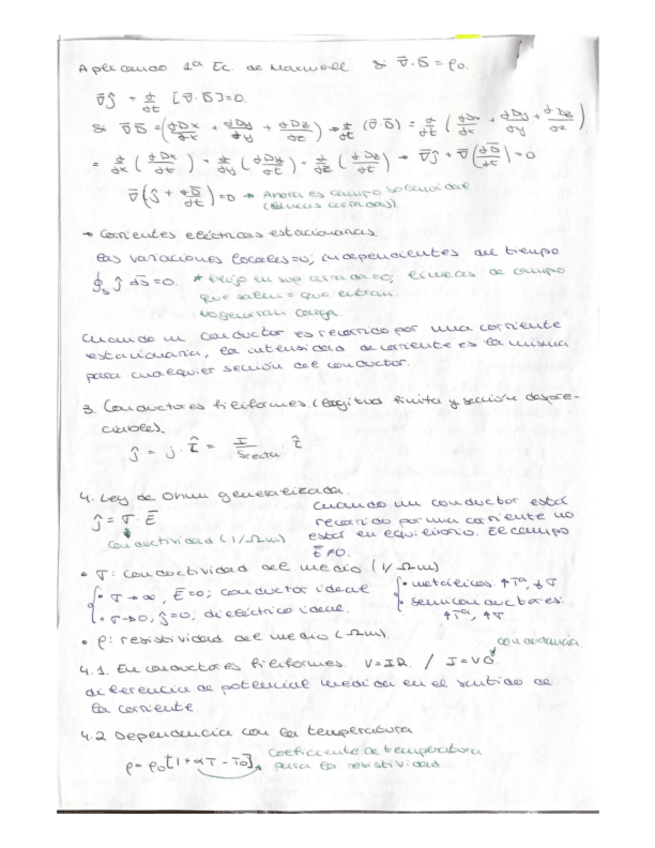 Aplicando 1ª Ec. de Maxwell. Si ∇·D̄ = ρ₀.
∇ĵ + d/dt [∇·D̄] = 0.
Si ∇D̄ = (dDx/dx + dDy/dy + dDz/dz) → d/dt (∇·D̄) = d/dt (dDx/dx + dDy/dy + dDz/dz)
= d/dx (dDx/dt) + d/dy (dDy/dt) + d/dz (dDz/dt) → ∇ĵ + ∇(dD̄/dt) = 0
∇(ĵ + dD̄/dt) = 0 → Ahora es campo solenoidal
(líneas cerradas).
→ Corrientes eléctricas estacionarias.
las variaciones locales = 0; independientes del tiempo
∮s ĵ ds̄ = 0. * flujo en sup cerrada = 0; líneas de campo
que salen = que entran.
No generan carga.
Cuando un conductor es recorrido por una corriente
estacionaria, la intensidad de corriente es la misma
para cualquier sección del conductor.
3. Conductores filiformes. (longitud finita y sección despre-
ciables).
ĵ = j · t̂ = I/Srecta · t̂
4. Ley de Ohm generalizada.
ĵ = σ · Ē
conductividad (1/Ωm)
Cuando un conductor está
recorrido por una corriente no
está en equilibrio. El campo
Ē ≠ 0.
• σ: conductividad del medio (1/Ωm)
• σ → ∞, Ē = 0; conductor ideal
• σ → 0, ĵ = 0; dieléctrico ideal.
• metálicos: ↑Tª, ↓σ
• Semiconductores:
↑Tª, ↑σ
• ρ: resistividad del medio (Ωm).
conductancia
4.1. En conductores filiformes. V = IR. / I = VG.
diferencia de potencial medida en el sentido de
la corriente.
4.2 Dependencia con la temperatura
ρ = ρ₀ [1 + αT - T₀] Coeficiente de temperatura
para la resistividad.